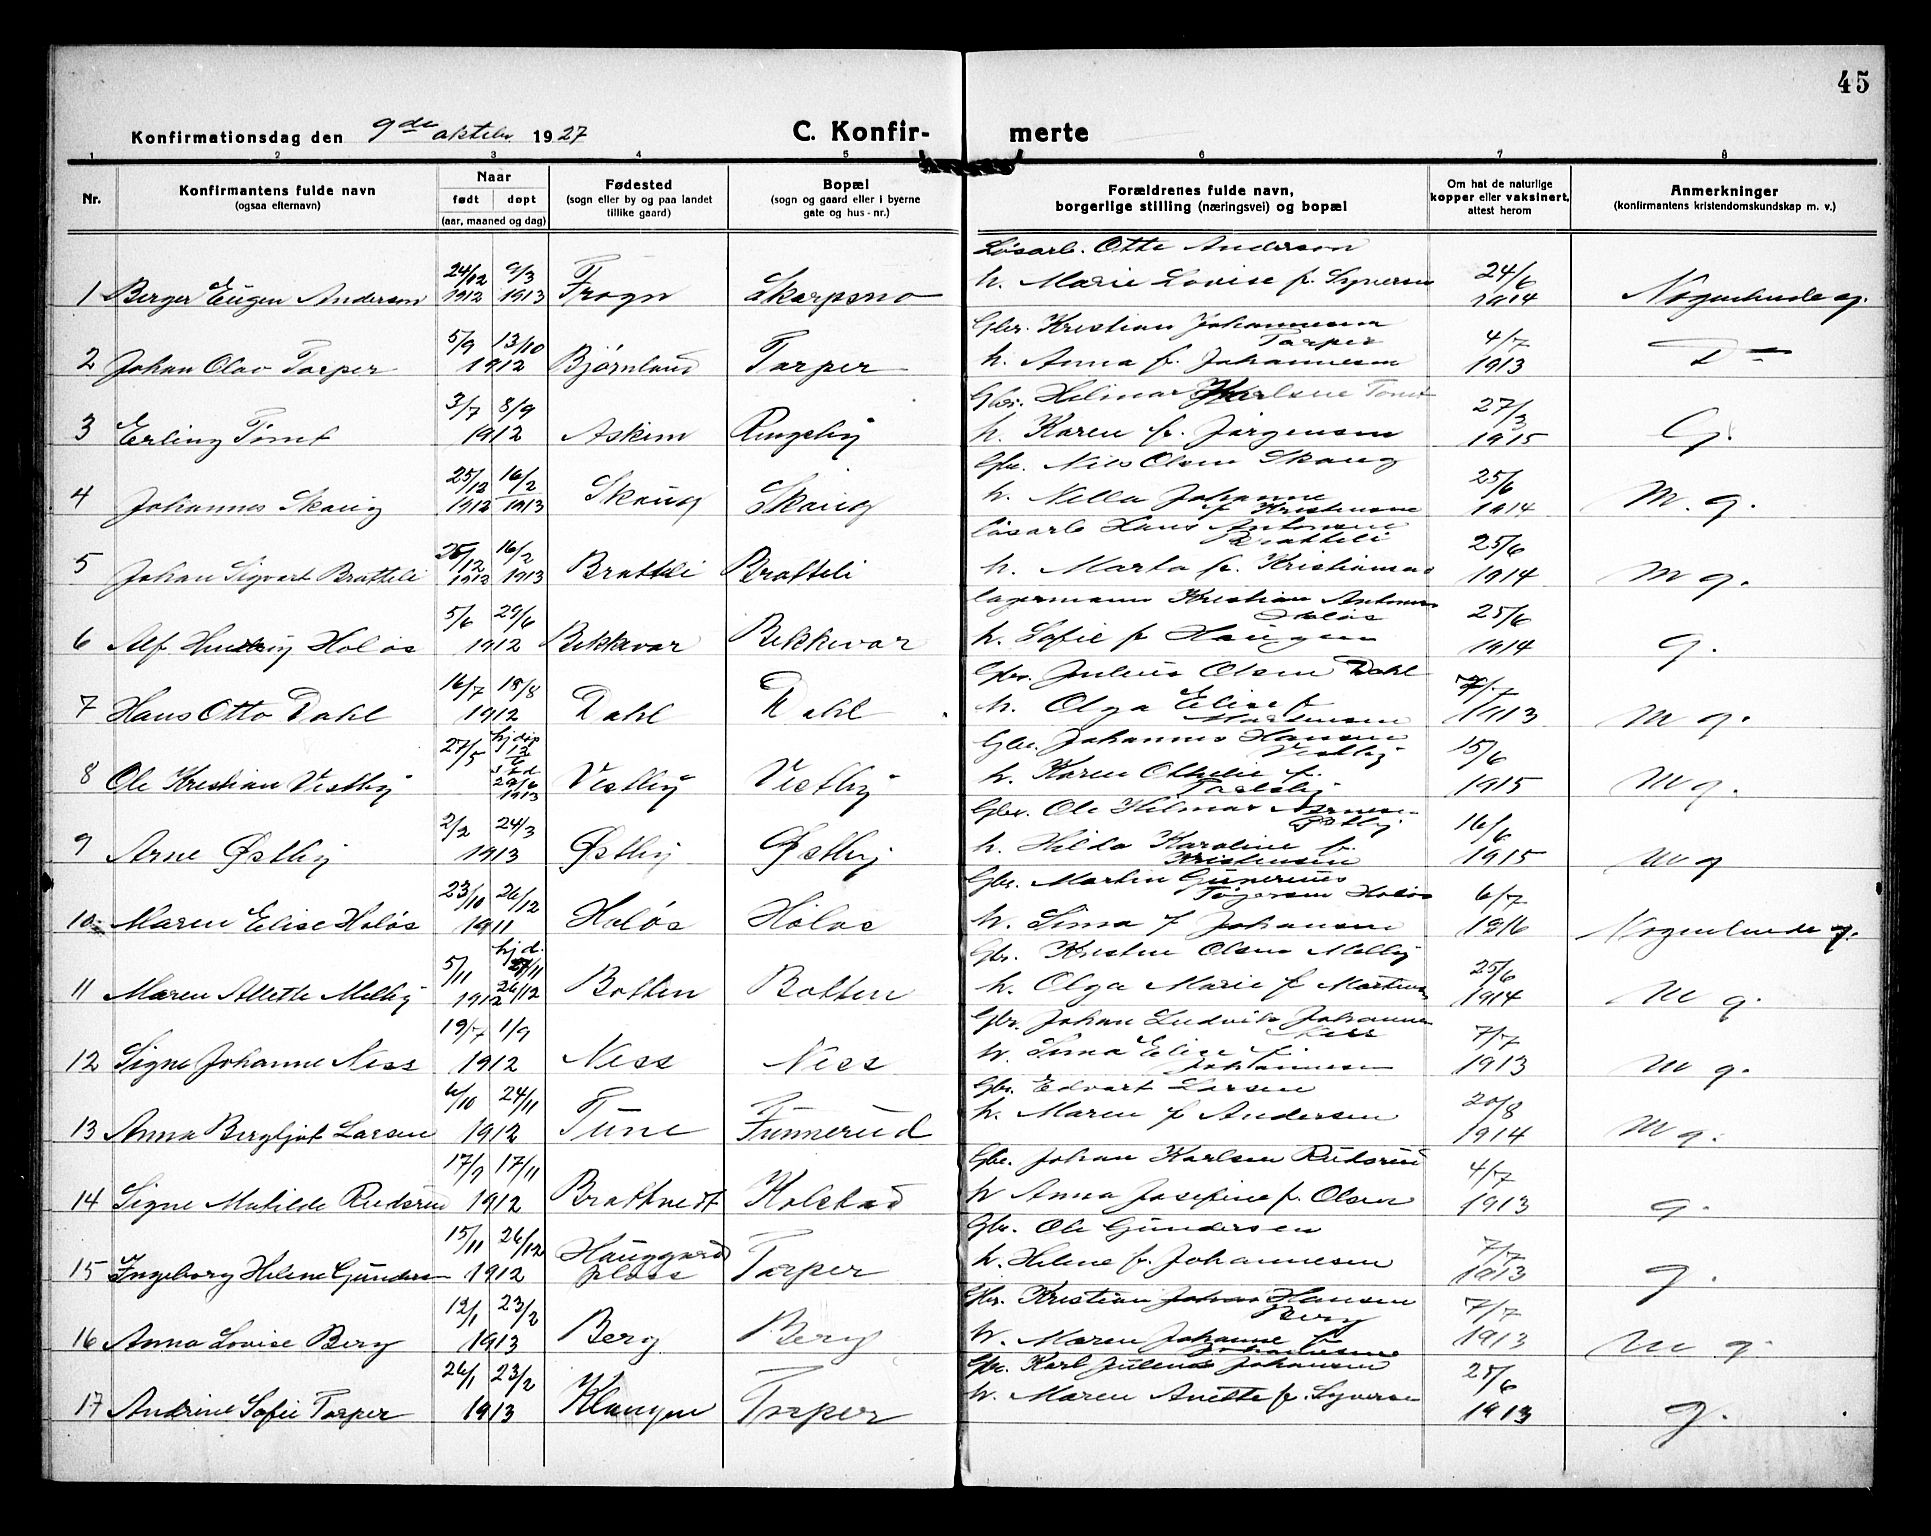 45
Konfirmationsdag den 9de oktebr. 1927 C. Konfir- merte
1 2 3 4 5 6 7 8
Nr.
Konfirmantens fulde navn
(ogsaa efternavn)
Naar
født døpt
(aar, maaned og dag)
Fødested
(sogn eller by og paa landet
tillike gaard)
Bopæl
(sogn og gaard eller i byerne
gate og hus-nr.)
Forældrenes fulde navn,
borgerlige stilling (næringsvei) og bopæl
Om hat de naturlige
kopper eller vaksinert,
attest herom
Anmerkninger
(konfirmantens kristendomskundskap m. v.)
Løsarb. Otto Anderson
1 Berger Eugen Anderson 24/12 1912 9/3 1913 Frogn Skarpsno h. Marie Lovise f. Syversen 24/6 1914 Nogenlunde g.
Gbr. Kristian Johannesen
Torper
2 Johan Olav Torper 5/9 13/10 1912 Bjørnland Torper h. Anna f. Johannesen 4/7 1913 Do
Gbr. Hilmar Karlsen Tomt
3 Erling Tomt 3/7 8/9 1912 Askim Ringsby h. Karen f. Jørgensen 27/3 1915 G.
Gbr. Nils Olsen Skaug
4 Johannes Skaug 25/12 1912 16/2 1913 Skaug Skaug h. Nella Johanne
f Kristensen 25/6 1914 M. g.
Løsarb Hans Antonsen
Bratteli
5 Johan Sigvart Bratteli 25/12 1912 16/2 1913 Bratteli Bratteli h. Marta f. Kristiansen 25/6 1914 M g.
Lagermann Kristian Antonsen
Holøs
6 Alf Henry Holøs 5/6 29/6 1912 Bekkevar Bekkevar h. Sofie f Haugen 25/6 1914 g.
Gbr. Julius Olsen Dahl
7 Hans Otto Dahl 16/7 18/8 1912 Dahl Dahl h. Olga Elise f
Martinsen 7/7 1913 M g.
Gbr. Johannes Hansen
Vestby
8 Ole Kristian Vestby 27/5 hj.døp 12/6 st d. 29/6 1913 Vestby Vestby h. Karen Othilie f.
Trolsby 15/6 1915 M g.
Gbr. Ole Hilmar
Østby
9 Arne Østby 2/2 24/3 1913 Østby Østby h. Hilda Karoline f.
Kristensen 16/6 1915 M g
Gbr. Martin Gunerius
Tøgersen Holøs
10 Maren Elise Holøs 23/10 26/12 1911 Holøs Holøs h. Lina f Johansen 6/7 1916 Nogenlunde g.
Gbr. Kristen Olsen Melby
11 Maren Alette Melby 5/11 hj d. 27/11 1912 26/12 Botten Botten h. Olga Marie f Martinsen 25/6 1914 M g.
Gbr. Johan Ludvik Johannesen
Ness
12 Signe Johanne Ness 19/7 1/9 1912 Ness Ness h. Lina Elise f.
Johannesen 7/7 1913 M g.
Gbr. Edvart Larsen
13 Anna Bergljot Larsen 6/10 24/11 1912 Tune Funnerud h. Maren f Andersen 20/8 1914 M g.
Gbr. Johan Karlsen Rudsrud
14 Signe Matilde Rudsrud 17/9 17/11 1912 Brattvedt Holstad h Anna Josefine f. Olsen 4/7 1913 g.
Gbr. Ole Gundersen
15 Ingeborg Helene Gundersen 15/11 26/12 1912 Hauggard
plass Torper h. Helene f. Johannesen 7/7 1913 g.
Gbr. Kristian Johan Hansen
Berg
16 Anna Lovise Berg 12/1 23/2 1913 Berg Berg h. Maren Johanne f
Johannesen 7/7 1913 M g.
Gbr. Karl Julius Johansen
17 Andrine Sofie Torper 26/1 23/2 1913 Klaugen Torper h. Maren Anette f. Syversen 25/6 1913 g.